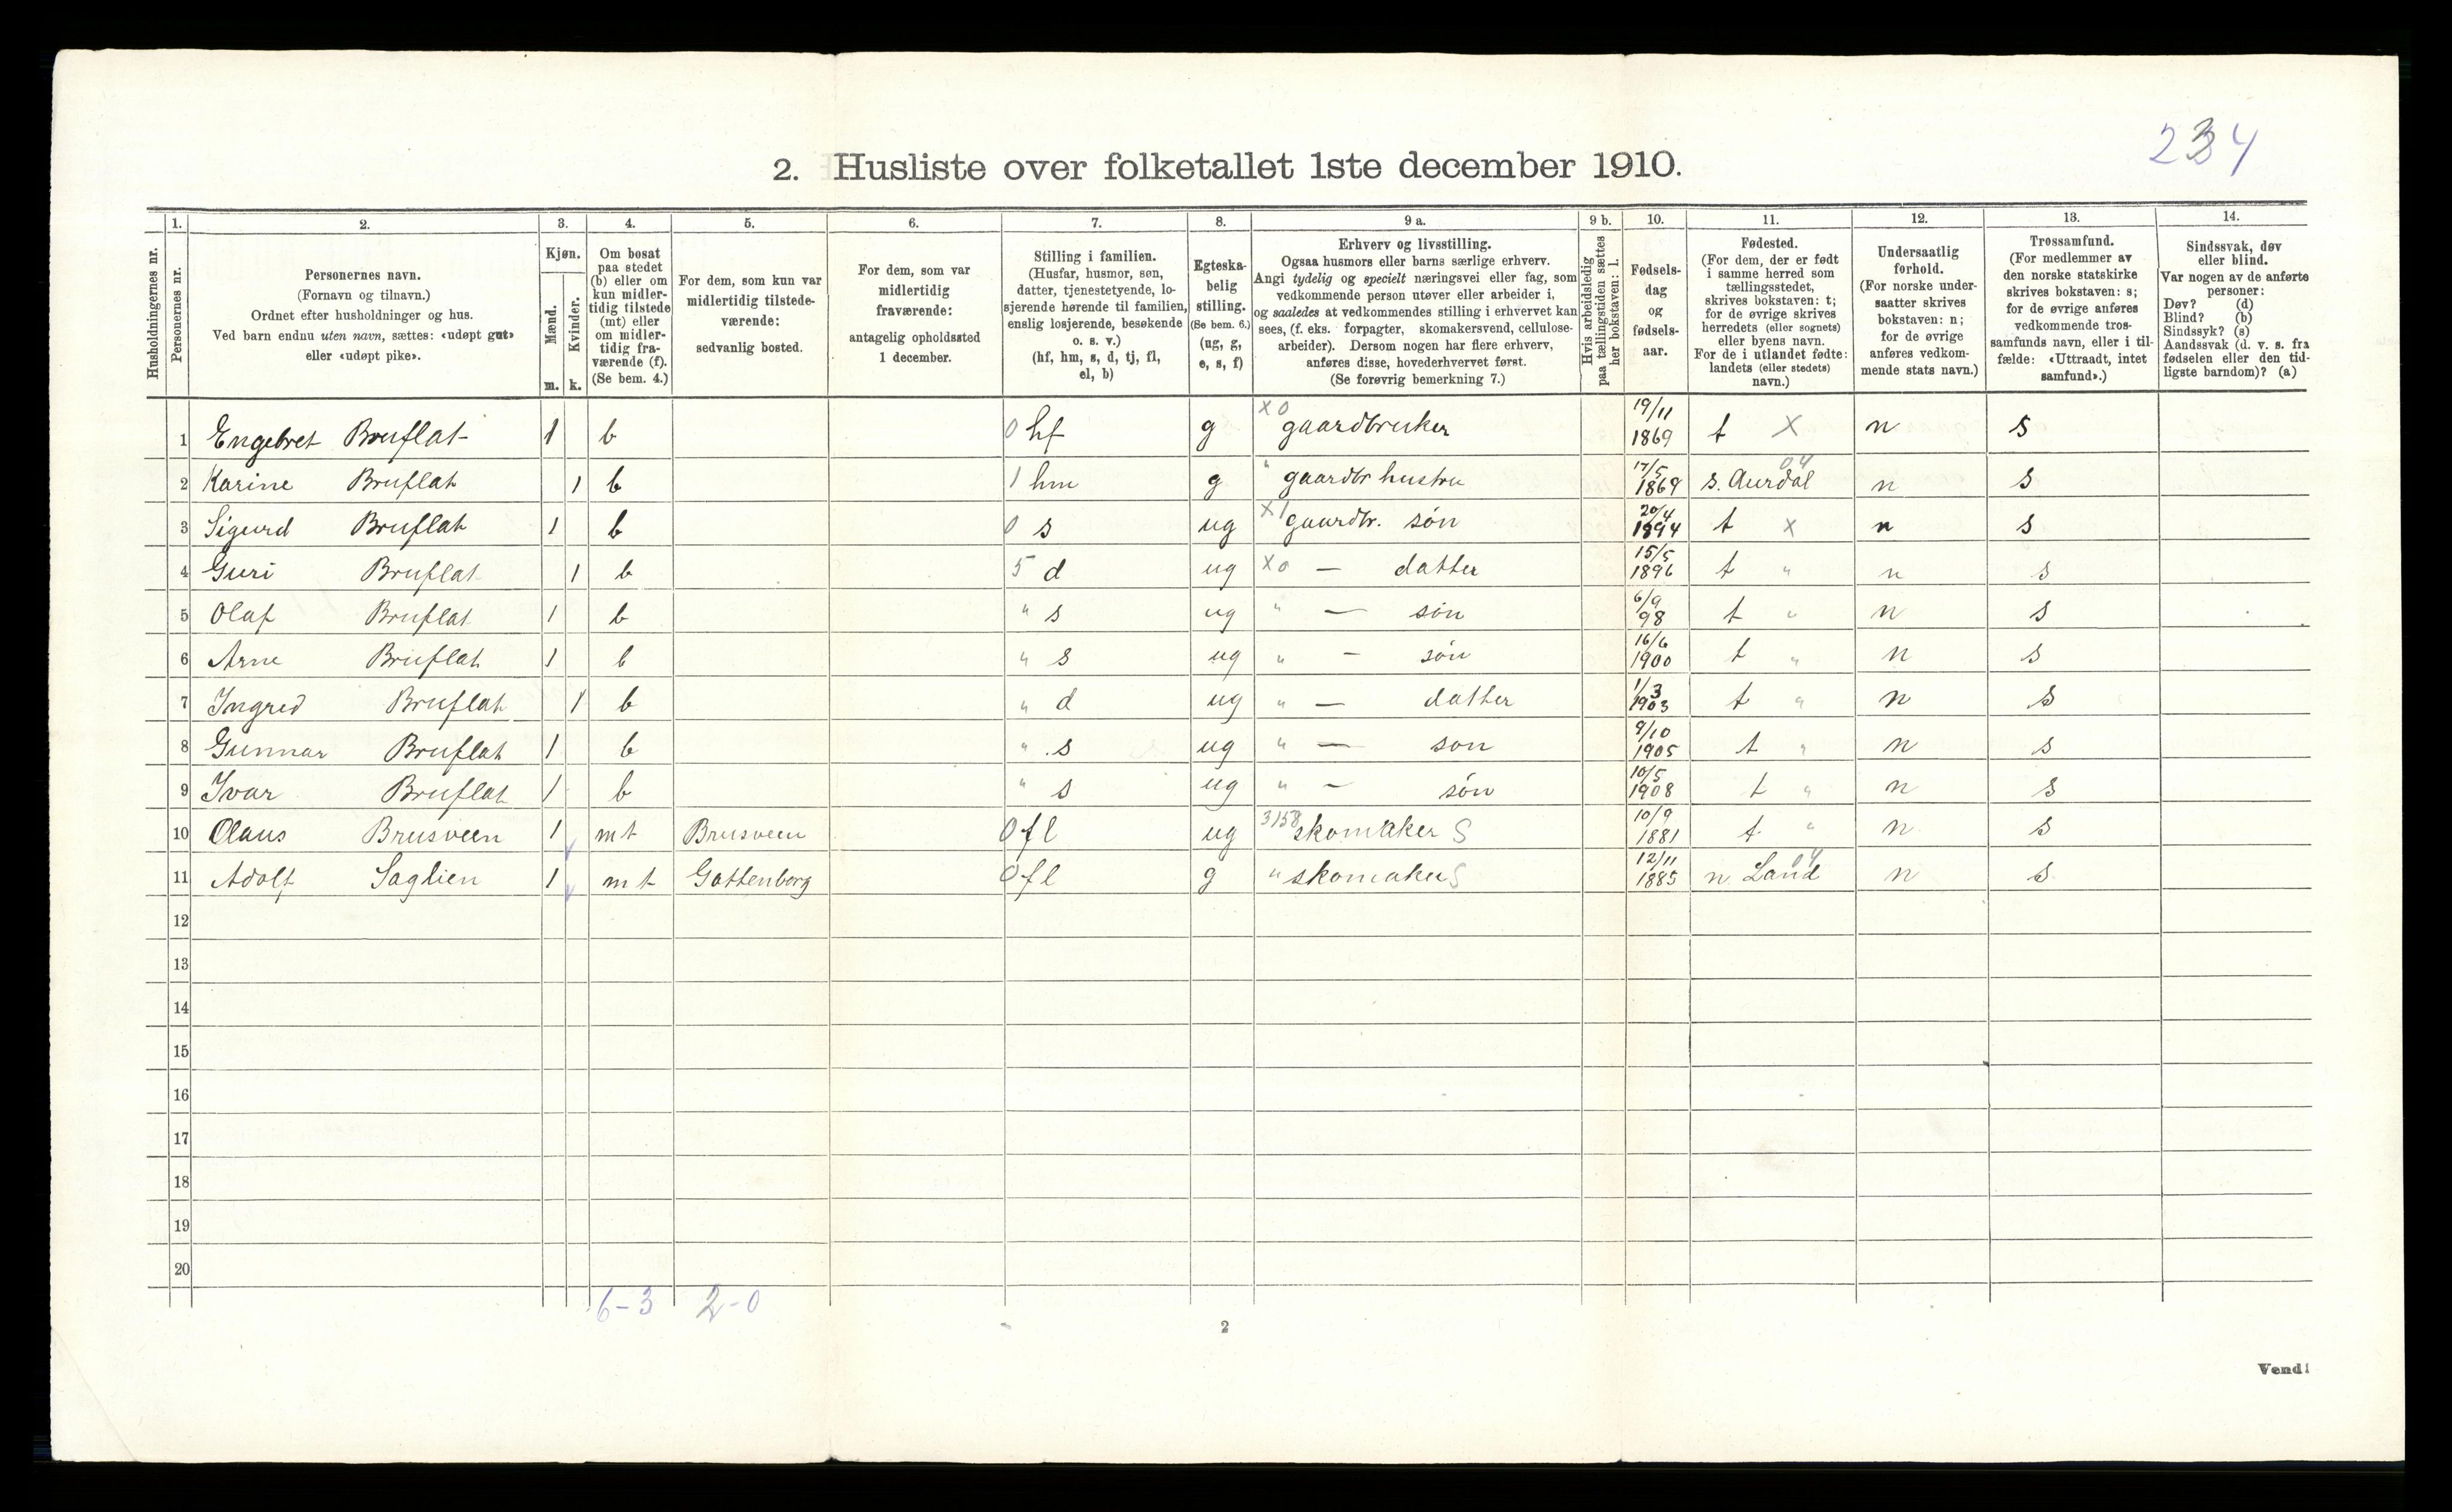 234
2. Husliste over folketallet 1ste december 1910.
Husholdningernes nr.
1. Personernes nr.
2. Personernes navn.
(Fornavn og tilnavn.)
Ordnet efter husholdninger og hus.
Ved barn endnu uten navn, sættes: «udøpt gut»
eller «udøpt pike».
3. Kjøn.
Mænd. m.
Kvinder. k.
4. Om bosat
paa stedet
(b) eller om
kun midler-
tidig tilstede
(mt) eller
om midler-
tidig fra-
værende (f).
(Se bem. 4.)
5. For dem, som kun var
midlertidig tilstede-
værende:
sedvanlig bosted.
6. For dem, som var
midlertidig
fraværende:
antagelig opholdssted
1 december.
7. Stilling i familien.
(Husfar, husmor, søn,
datter, tjenestetyende, lo-
sjerende hørende til familien,
enslig losjerende, besøkende
o. s. v.)
(hf, hm, s, d, tj, fl,
el, b)
8. Egteska-
belig
stilling.
(Se bem. 6.)
(ug, g,
e, s, f)
9 a. Erhverv og livsstilling.
Ogsaa husmors eller barns særlige erhverv.
Angi tydelig og specielt næringsvei eller fag, som
vedkommende person utøver eller arbeider i,
og saaledes at vedkommendes stilling i erhvervet kan
sees, (f. eks. forpagter, skomakersvend, cellulose-
arbeider). Dersom nogen har flere erhverv,
anføres disse, hovederhvervet først.
(Se forøvrig bemerkning 7.)
9 b. Hvis arbeidsledig
paa tællingstiden sættes
her bokstaven: l.
10. Fødsels-
dag
og
fødsels-
aar.
11. Fødested.
(For dem, der er født
i samme herred som
tællingsstedet,
skrives bokstaven: t;
for de øvrige skrives
herredets (eller sognets)
eller byens navn.
For de i utlandet fødte:
landets (eller stedets)
navn.)
12. Undersaatlig
forhold.
(For norske under-
saatter skrives
bokstaven: n;
for de øvrige
anføres vedkom-
mende stats navn.)
13. Trossamfund.
(For medlemmer av
den norske statskirke
skrives bokstaven: s;
for de øvrige anføres
vedkommende tros-
samfunds navn, eller i til-
fælde: «Uttraadt, intet
samfund».)
14. Sindssvak, døv
eller blind.
Var nogen av de anførte
personer:
Døv? (d)
Blind? (b)
Sindssyk? (s)
Aandssvak (d. v. s. fra
fødselen eller den tid-
ligste barndom)? (a)
1 Engebret Bruflat 1 b 0 hf g x0 gaardbruker 19/11 1869 t x n s
2 Karine Bruflat 1 b 1 hm g " gaardbr hustru 17/5 1869 s. Aurdal 04 n s
3 Sigurd Bruflat 1 b 0 s ug x1 gaardbr. søn 20/4 1894 t x n s
4 Guri Bruflat 1 b 5 d ug x0 — datter 15/5 1896 t " n s
5 Olaf Bruflat 1 b " s ug " — søn 6/9 98 t " n s
6 Arne Bruflat 1 b " s ug " — søn 16/6 1900 t " n s
7 Ingred Bruflat 1 b " d ug " — datter 1/3 1903 t " n s
8 Gunnar Bruflat 1 b " s ug " — son 9/10 1905 t " n s
9 Ivar Bruflat 1 b " s ug " — søn 10/5 1908 t " n s
10 Olaus Brusveen 1 mt Brusveen 0 fl ug 3158 skomaker S 10/9 1881 t " n s
11 Adolf Saglien 1 mt Gattenborg 0 fl g " skomaker S 12/11 1885 n. Land 04 n s
12
13
14
15
16
17
18
19
20
6-3 2-0
2
Vend!